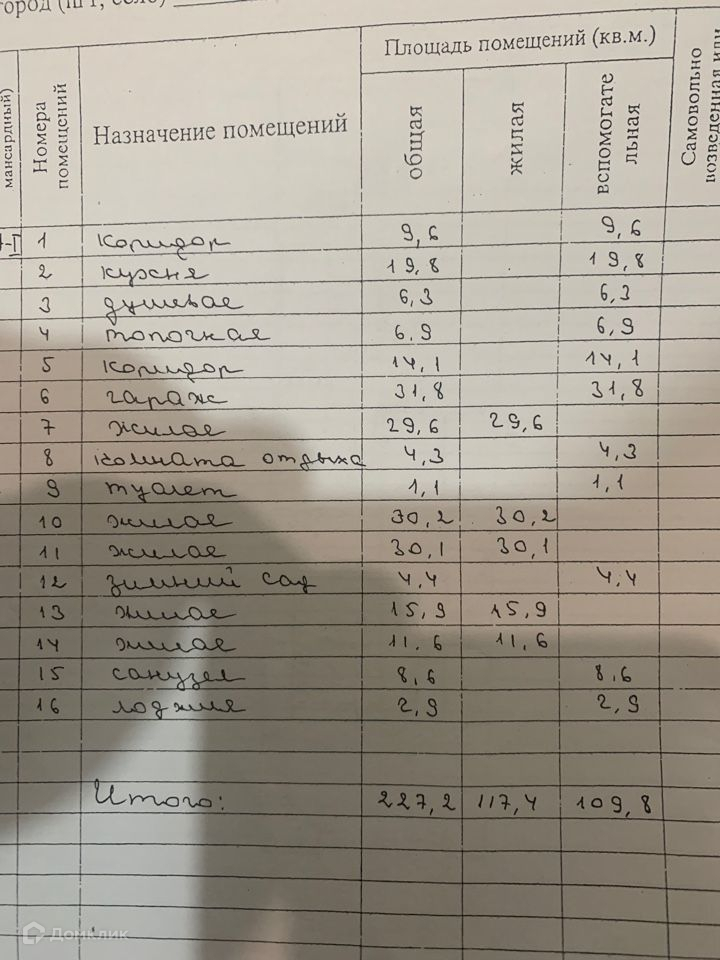 город (пгт, село)
Площадь помещений (кв.м.)
мансардный)
Номера помещений
Назначение помещений
общая
жилая
вспомогате льная
Самовольно возведенная или
1 коридор 9,6 9,6
2 кухня 19,8 19,8
3 душевая 6,3 6,3
4 топочная 6,9 6,9
5 коридор 14,1 14,1
6 гараж 31,8 31,8
7 жилая 29,6 29,6
8 комната отдыха 4,3 4,3
9 туалет 1,1 1,1
10 жилая 30,2 30,2
11 жилая 30,1 30,1
12 зимний сад 4,4 4,4
13 жилая 15,9 15,9
14 жилая 11.6 11,6
15 санузел 8,6 8,6
16 лоджия 2,9 2,9
Итого: 227,2 117,4 109,8
Домклик